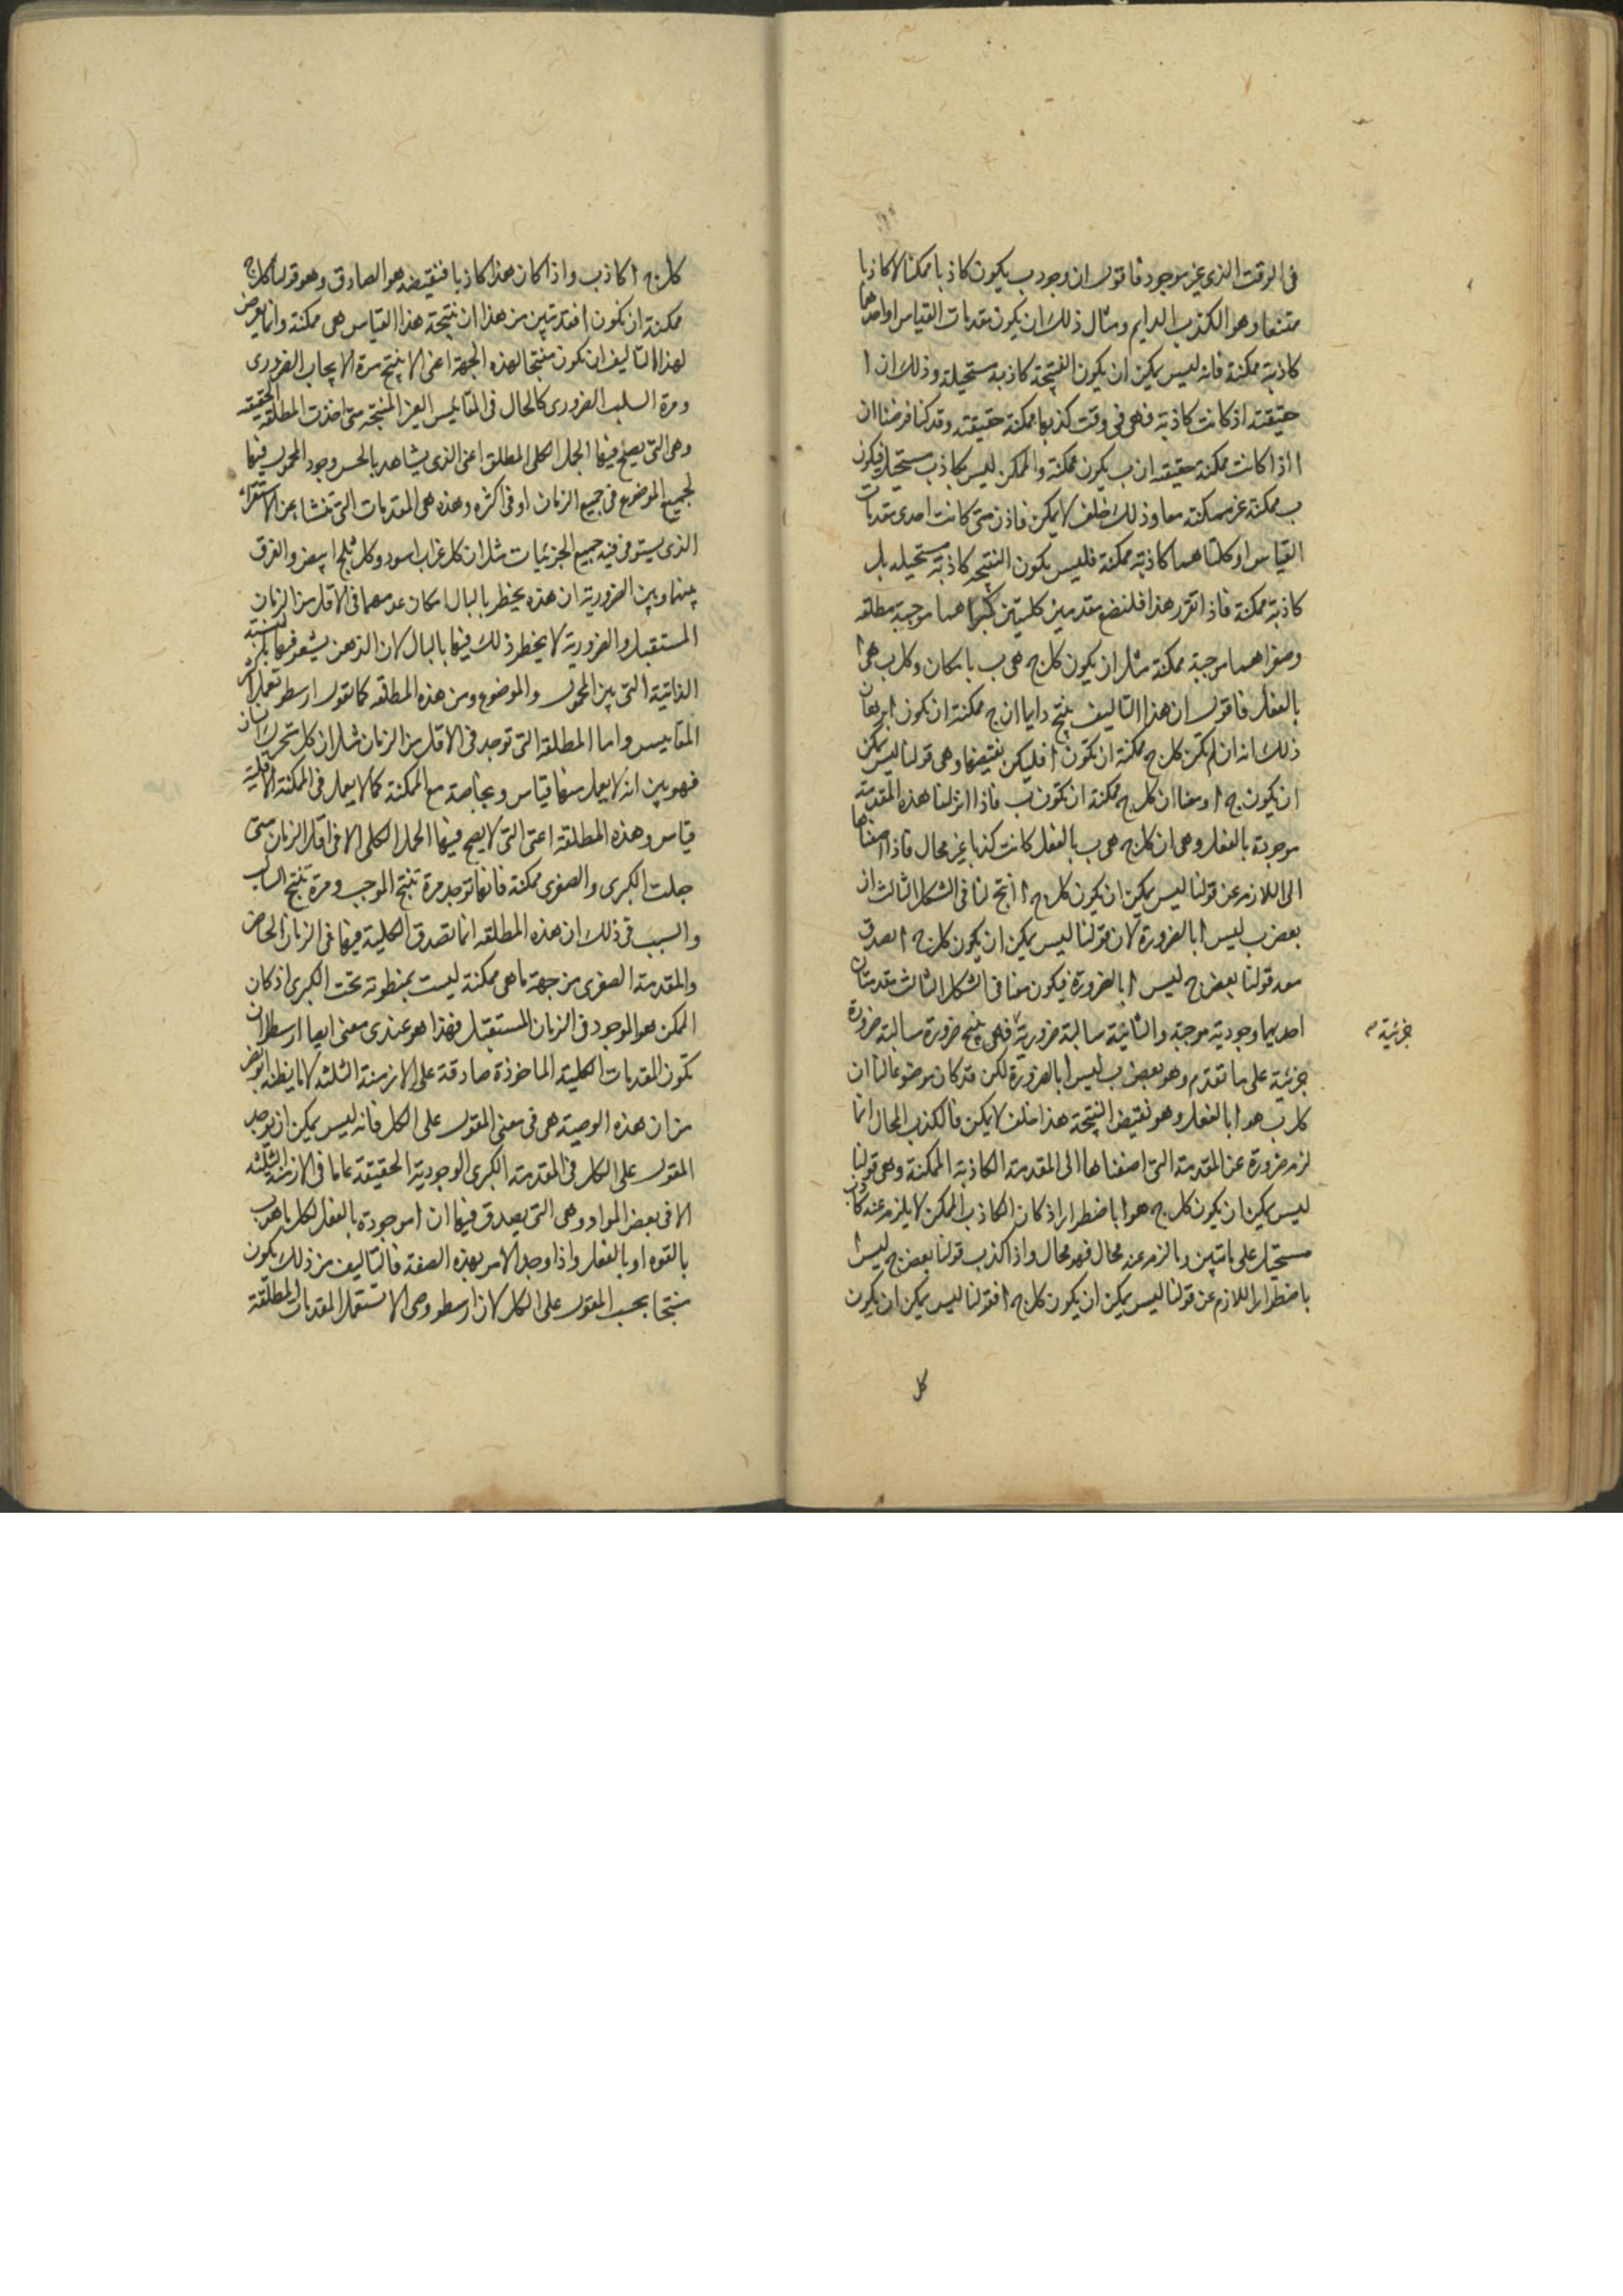 فى الوقت الذى غير موجود فاقول ان وجود ب يكون كاذبا ممكنا لا كاذبا
ممتنعا وهو الكذب الدايم ومثال ذلك ان يكون مقدمات القياس او احدهما
كاذبة ممكنة فانه ليس يمكن ان يكون النتيجة كاذبة مستحيلة وذلك ان ا
حقيقته اذ كانت كاذبة فهى فى وقت كذبها ممكنة حقيقته وقد كنا فرضنا ان
ا اذا كانت ممكنة حقيقته ان ب يكون ممكنة والممكن ليس بكاذب مستحيل فيكون
ب ممكنة غير ممكنة معا وذلك خلف لا يمكن فاذن متى كانت احدى مقدمات
القياس او كلتاهما كاذبة ممكنة فليس يكون النتيجه كاذبة مستحيله بل
كاذبة ممكنة فاذا تقرر هذا فلنضع مقدمتين كليتين كبراهما موجبة مطلقه
وصغراهما موجبة ممكنة مثل ان يكون كل ج هى ب بامكان وكل ب هى ا
بالفعل فاقول ان هذا التاليف ينتج دايما ان ج ممكنة ان يكون ا برهان
ذلك انه ان لم يكن كل ج ممكنة ان تكون ا فليكن نقيضها وهى قولنا ليس يمكن
ان يكون ج ا ومعنا ان كل ج ممكنة ان تكون ب فاذا انزلنا هذه المقدمة
موجودة بالفعل وهى ان كل ج هى ب بالفعل كانت كذبا غير محال فاذا اضفناها
الى اللازم عن قولنا ليس يمكن ان يكون كل ج ا انتج لنا فى الشكل الثالث ان
بعض ب ليس ا بالضرورة لان قولنا ليس يمكن ان يكون كل ج ا يصدق
معه قولنا بعض ج ليس ا بالضرورة فيكون معنا فى الشكل الثالث مقدمتان
احديهما وجودية موجبة والثانية سالبة ضرورية فهى ينتج ضرورة سالبة ضرورة
جزئية م
جزئية على ما تقدم وهو بعض ب ليس ا بالضرورة لكن قد كان موضوعا لنا ان
كل ب هو ا بالفعل وهو نقيض النتيجة هذا خلف لا يمكن فالكذب المحال انما
لزم ضرورة عن المقدمة التى اضفناها الى المقدمة الكاذبة الممكنة وهى قولنا
ليس يمكن ان يكون كل ج هو ا باضطرار اذ كان الكاذب الممكن لا يلزم عنه كاذب
مستحيل على ما تبين وما لزم عنه محال فهو محال واذا كذب قولنا بعض ج ليس ا
باضطرار اللازم عن قولنا ليس يمكن ان يكون كل ج ا فقولنا ليس يمكن ان يكون
كل
كل ج ا كاذب واذا كان هذا كاذبا فنقيضه هو الصادق وهو قولنا كل ج
ممكنة ان تكون ا فقد تبين من هذا ان نتيجة هذا القياس هى ممكنة وانما يعرض
لهذا التاليف ان تكون منتجا لهذه الجهة اعنى الا ينتج مرة الايجاب الضرورى
ومرة السلب الضرورى كالحال فى المقاييس الغير المنتجة متى اخذت المطلقة الحقيقيه
وهى التى يصح فيها الحمل الكلى المطلق اعنى الذى يشاهد بالحس وجود المحمول فيها
لجميع الموضوع فى جميع الزمان او فى اكثره وهذه هى المقدمات التى تنشا عن الاستقراء
الذى يستوفى فيه جميع الجزئيات مثل ان كل غراب اسود وكل ثلج ابيض والفرق
بينها وبين الضرورية ان هذه يخطر بالبال امكان عدمهما فى الاقل من الزمان
المستقبل والضرورية لا يخطر ذلك فيها بالبال لان الذهن يشعر فيها بالنسبة
الذاتية التى بين المحمول والموضوع ومن هذه المطلقه كما تقول ارسطو تعمل اكثر
المقاييس واما المطلقة التى توجد فى الاقل من الزمان مثل ان كل متحرك انسان
فهو بين انه لا يعمل منها قياس وبخاصة مع الممكنة كما لا يعمل فى الممكنة الاقلية
قياس وهذه المطلقة اعنى التى لا يصح فيها الحمل الكلى الا فى اقل الزمان متى
جعلت الكبرى والصغرى ممكنة فانها توجد مرة تنتج الموجب ومرة تنتج السالب
والسبب فى ذلك ان هذه المطلقه انما تصدق الكلية فيها فى الزمان الحاضر
والمقدمة الصغرى من جهة ما هى ممكنة ليست بمنطوية تحت الكبرى اذ كان
الممكن هو الموجود فى الزمان المستقبل فهذا هو عندى معنى ايصا ارسطو ان
تكون المقدمات الكلية الماخوذة صادقة على الازمنة الثلثه لا ما يظنه ابو نصر
من ان هذه الوصية هى فى معنى المقول على الكل فانه ليس يمكن ان يوجد
المقول على الكل فى المقدمة الكبرى الوجودية الحقيقة عاما فى الازمنة الثلثه
الا فى بعض المواد وهى التى يصدق فيها ان ا موجودة بالفعل لكل ما هو ب
بالقوه او بالفعل واذا وجد الامر بهذه الصفة فالتاليف من ذلك يكون
منتجا بحسب المقول على الكل لان ارسطو وصى الا تستعمل المقدمات المطلقة